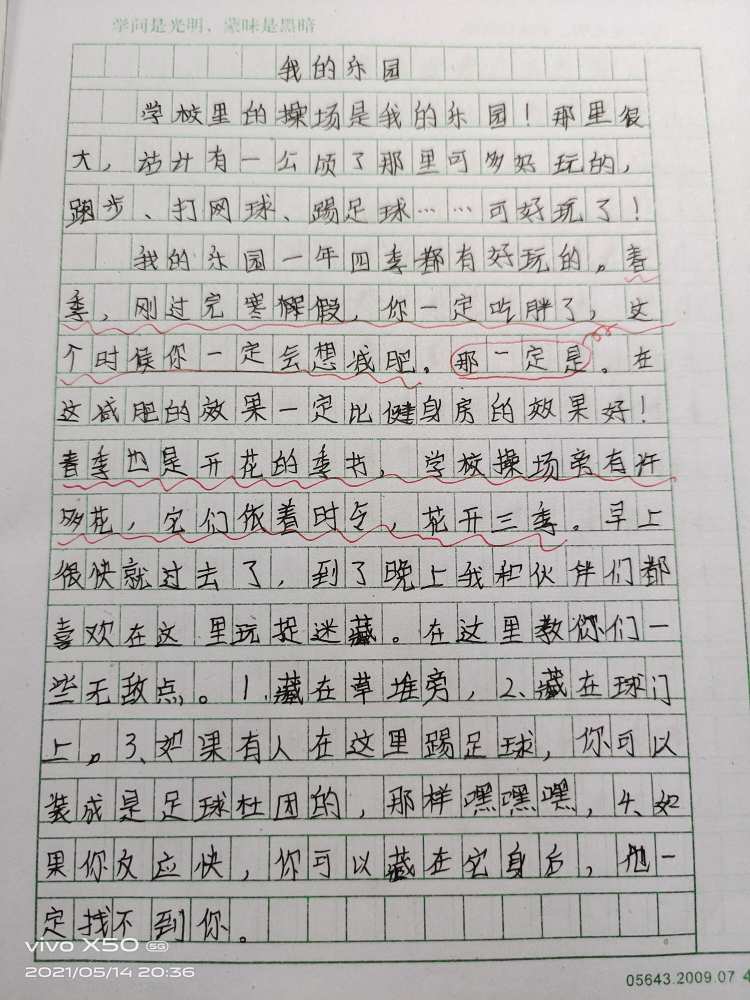 学问是光明，蒙昧是黑暗
我的乐园
学校里的操场是我的乐园！那里很
大，估计有一公顷了那里可多好玩的，
跑步、打网球、踢足球……可好玩了！
我的乐园一年四季都有好玩的。春
季，刚过完寒假，你一定吃胖了，这
个时候你一定会想减肥。那一定是。在
这减肥的效果一定比健身房的效果好！
春季也是开花的季节，学校操场旁有许
多花，它们依着时令，花开三季。早上
很快就过去了，到了晚上我和伙伴们都
喜欢在这里玩捉迷藏。在这里教你们一
些无敌点。1.藏在草堆旁，2、藏在球门
上。3、如果有人在这里踢足球，你可以
装成是足球社团的，那样嘿嘿嘿，4、如
果你反应快，你可以藏在它身后，他一
定找不到你。
vivo X50 5G
2021/05/14 20:36
05643.2009.07